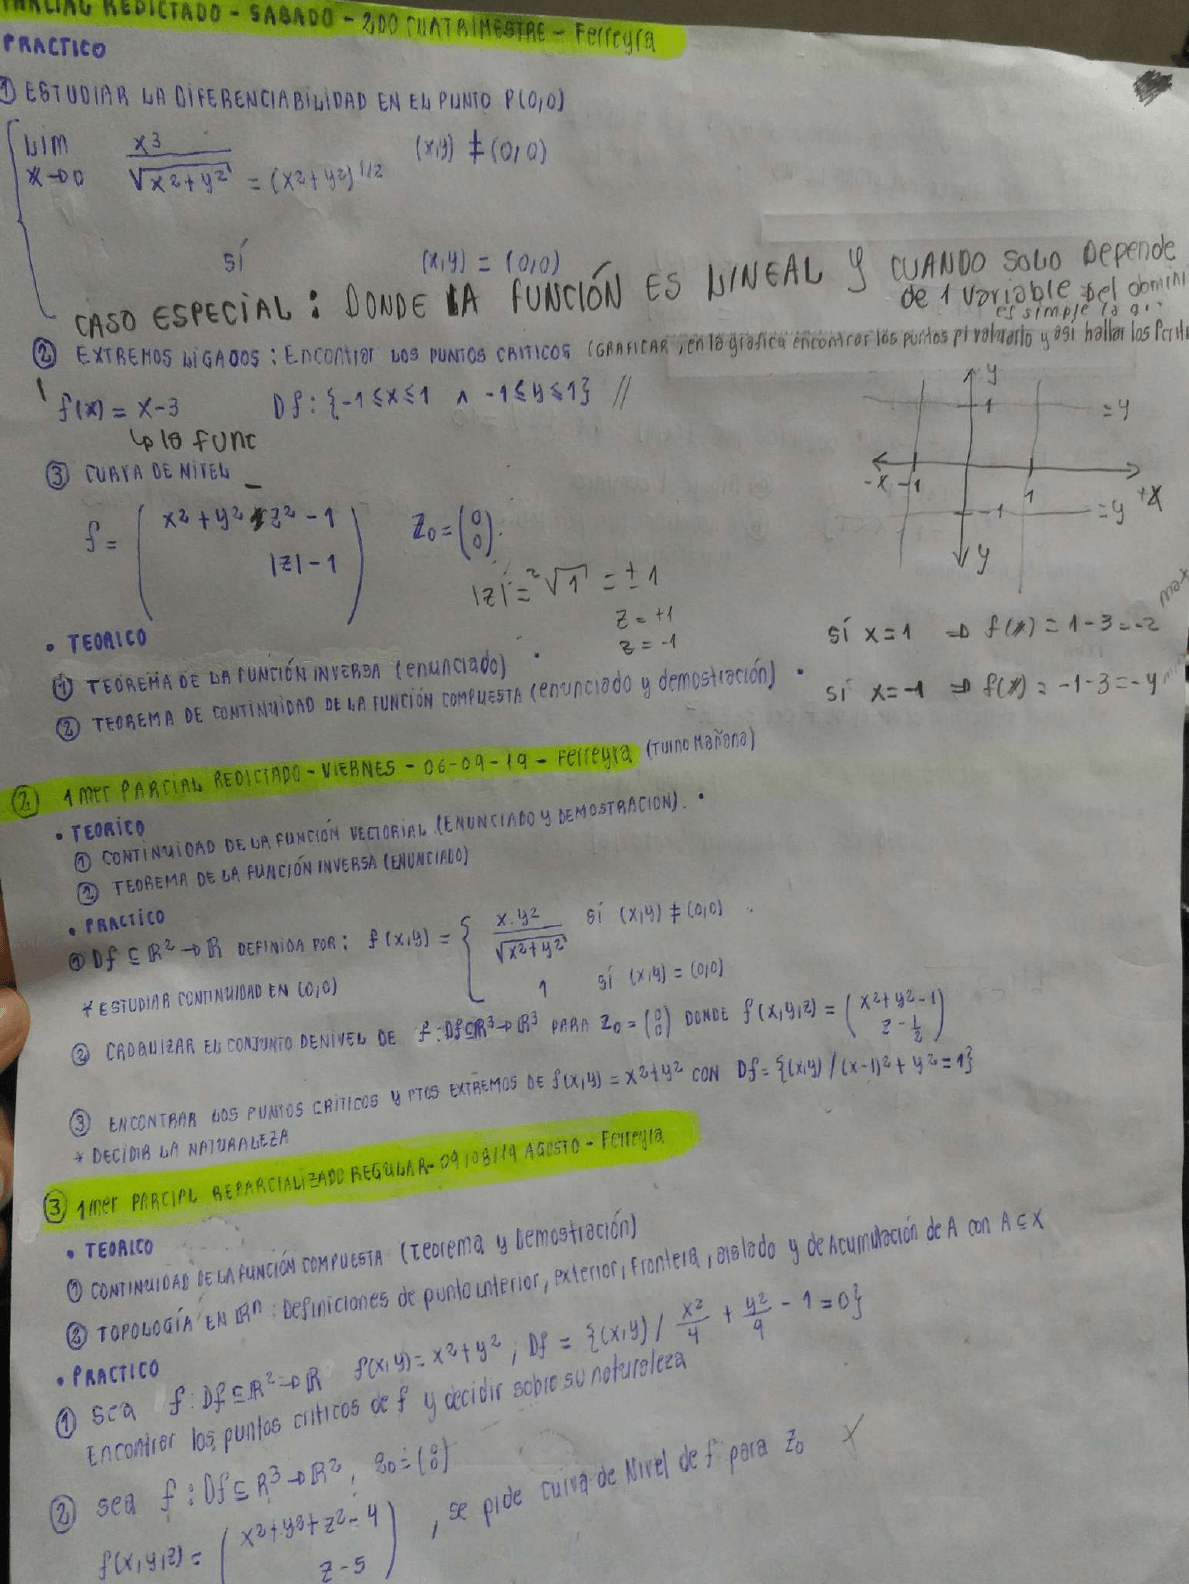 PARCIAL REDICTADO - SABADO - 2DO CUATRIMESTRE - Ferreyra
PRACTICO
① ESTUDIAR LA DIFERENCIABILIDAD EN EL PUNTO P(0,0)
Lim x→0 x3 / √x2+y2 = (x2+y2)1/2 (x,y) ≠ (0,0)
SÍ (x,y) = (0,0)
CASO ESPECIAL: DONDE LA FUNCIÓN ES LINEAL Y CUANDO SOLO Depende
de 1 variable del domini
es simple la
② EXTREMOS LIGADOS: Encontrar LOS PUNTOS CRITICOS (GRAFICAR, en la grafica encontrar los puntos p/ valuarlo y asi hallar los
f(x) = x-3 Df: {-1≤x≤1 ∧ -1≤y≤1} //
↳ la func
y
1 =y
-x -1 1 +x
-1 =y
y
③ CURVA DE NIVEL
f = (x2+y2+z2-1
|z|-1) Z0 = (0 0).
|z| = 2√1 = ±1
z = +1
z = -1
SÍ x=1 ⇒ f(x) = 1-3 = -2
SÍ x=-1 ⇒ f(x) = -1-3 = -4
• TEORICO
① TEOREMA DE LA FUNCIÓN INVERSA (enunciado)
② TEOREMA DE CONTINUIDAD DE LA FUNCIÓN COMPUESTA (enunciado y demostración)
② 1mer PARCIAL REDICTADO - VIERNES - 06-09-19 - Ferreyra (Turno Mañana)
• TEORICO
① CONTINUIDAD DE LA FUNCIÓN VECTORIAL (ENUNCIADO Y DEMOSTRACION).
② TEOREMA DE LA FUNCIÓN INVERSA (ENUNCIADO)
• PRACTICO
① Df ⊆ R2 → R DEFINIDA POR: f(x,y) = { x.y2 / √x2+y2 SÍ (x,y) ≠ (0,0)
1 SÍ (x,y) = (0,0)
* ESTUDIAR CONTINUIDAD EN (0,0)
② CADQUIZAR EL CONJUNTO DE NIVEL DE f: Df⊆R3→R3 PARA Z0 = (0 0) DONDE f(x,y,z) = (x2+y2-1
z-1/2)
③ ENCONTRAR LOS PUNTOS CRÍTICOS Y PTOS EXTREMOS DE f(x,y) = x2+y2 CON Df = {(x,y) / (x-1)2 + y2 = 1}
* DECIDIR LA NATURALEZA
③ 1mer PARCIAL REPARCIALIZADO REGULAR - 09/08/19 AGOSTO - Ferreyra
• TEORICO
① CONTINUIDAD DE LA FUNCIÓN COMPUESTA (Teorema y Demostración)
② TOPOLOGÍA EN Rn: Definiciones de punto interior, exterior, Frontera, aislado y de Acumulación de A con A⊆X
• PRACTICO
① Sea f: Df⊆R2→R f(x,y) = x2+y2, Df = {(x,y) / x2/4 + y2/9 - 1 = 0}
Encontrar los puntos criticos de f y decidir sobre su naturaleza
② sea f: Df⊆R3→R2, z0 = (0 0)
f(x,y,z) = (x2+y2+z2-4
z-5), se pide curva de Nivel de f para z0